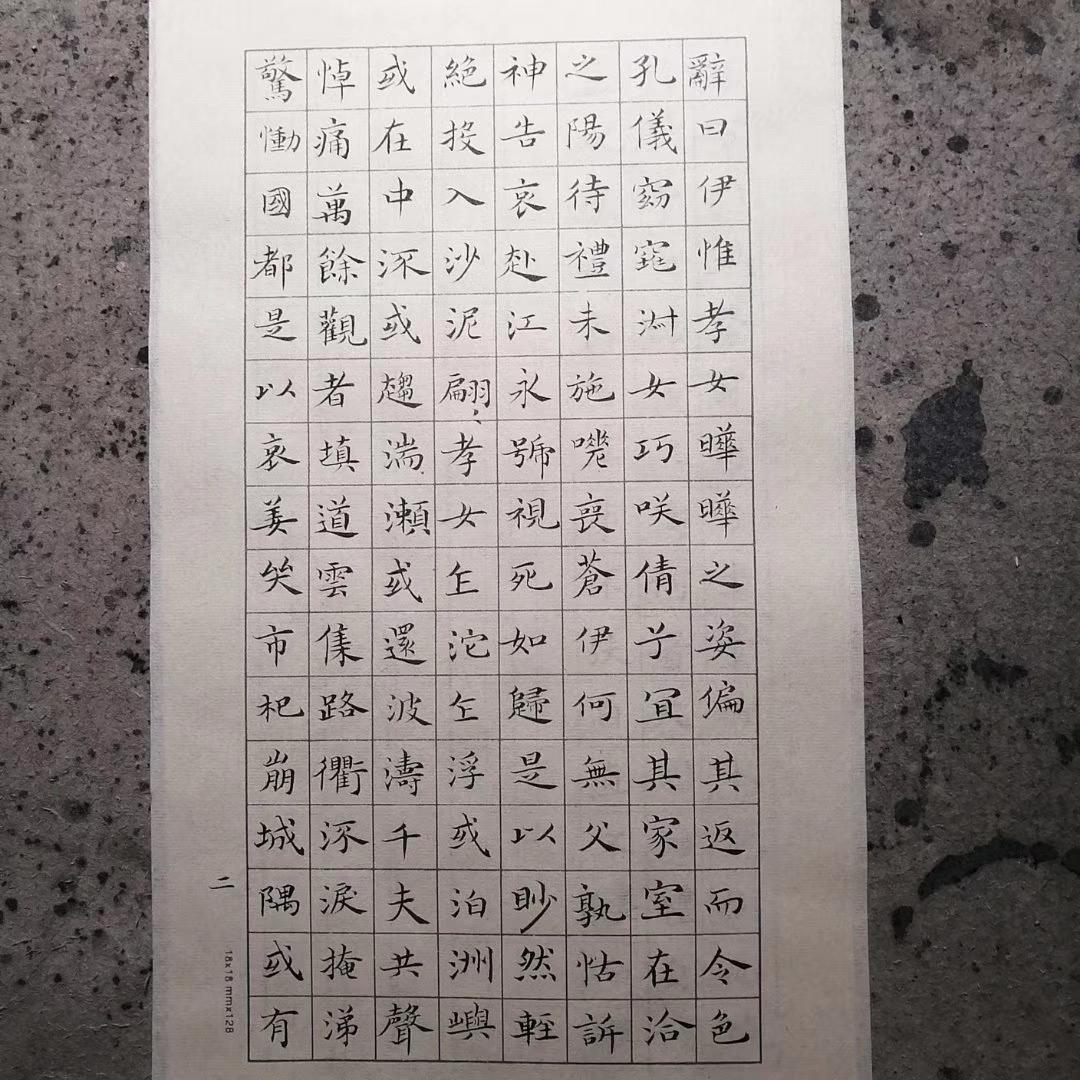 辭曰伊惟孝女曄曄之姿偏其返而令色
孔儀窈窕淑女巧咲倩兮宜其家室在洽
之陽待禮未施嗟喪蒼伊何無父孰怙訴
神告哀赴江永號視死如歸是以眇然輕
絕投入沙泥翩、孝女乍沱乍浮或泊洲嶼
或在中流或趨湍瀬或還波濤千夫共聲
悼痛萬餘觀者填道雲集路衢流淚掩涕
驚慟國都是以哀姜哭市杞崩城隅或有
二
18x18mmx128